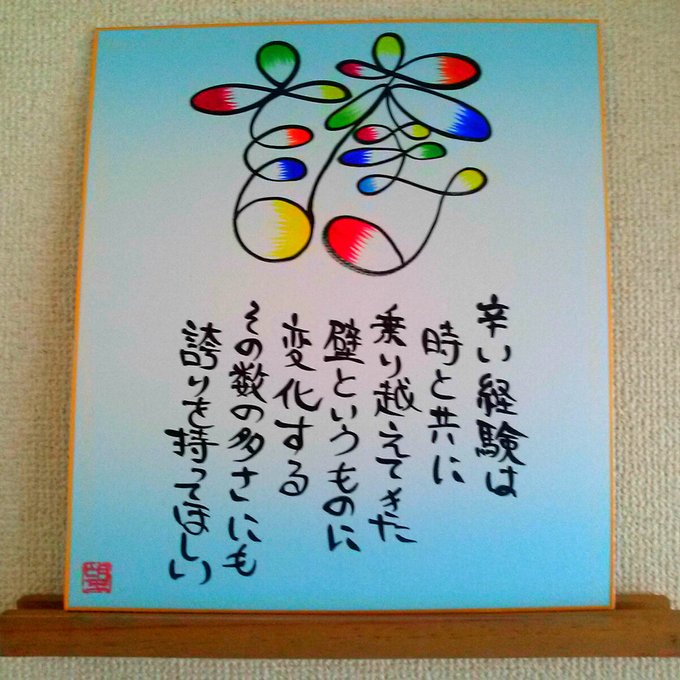 誇
辛い経験は
時と共に
乗り越えてきた
壁というものに
変化する
その数の多さにも
誇りを持ってほしい
望